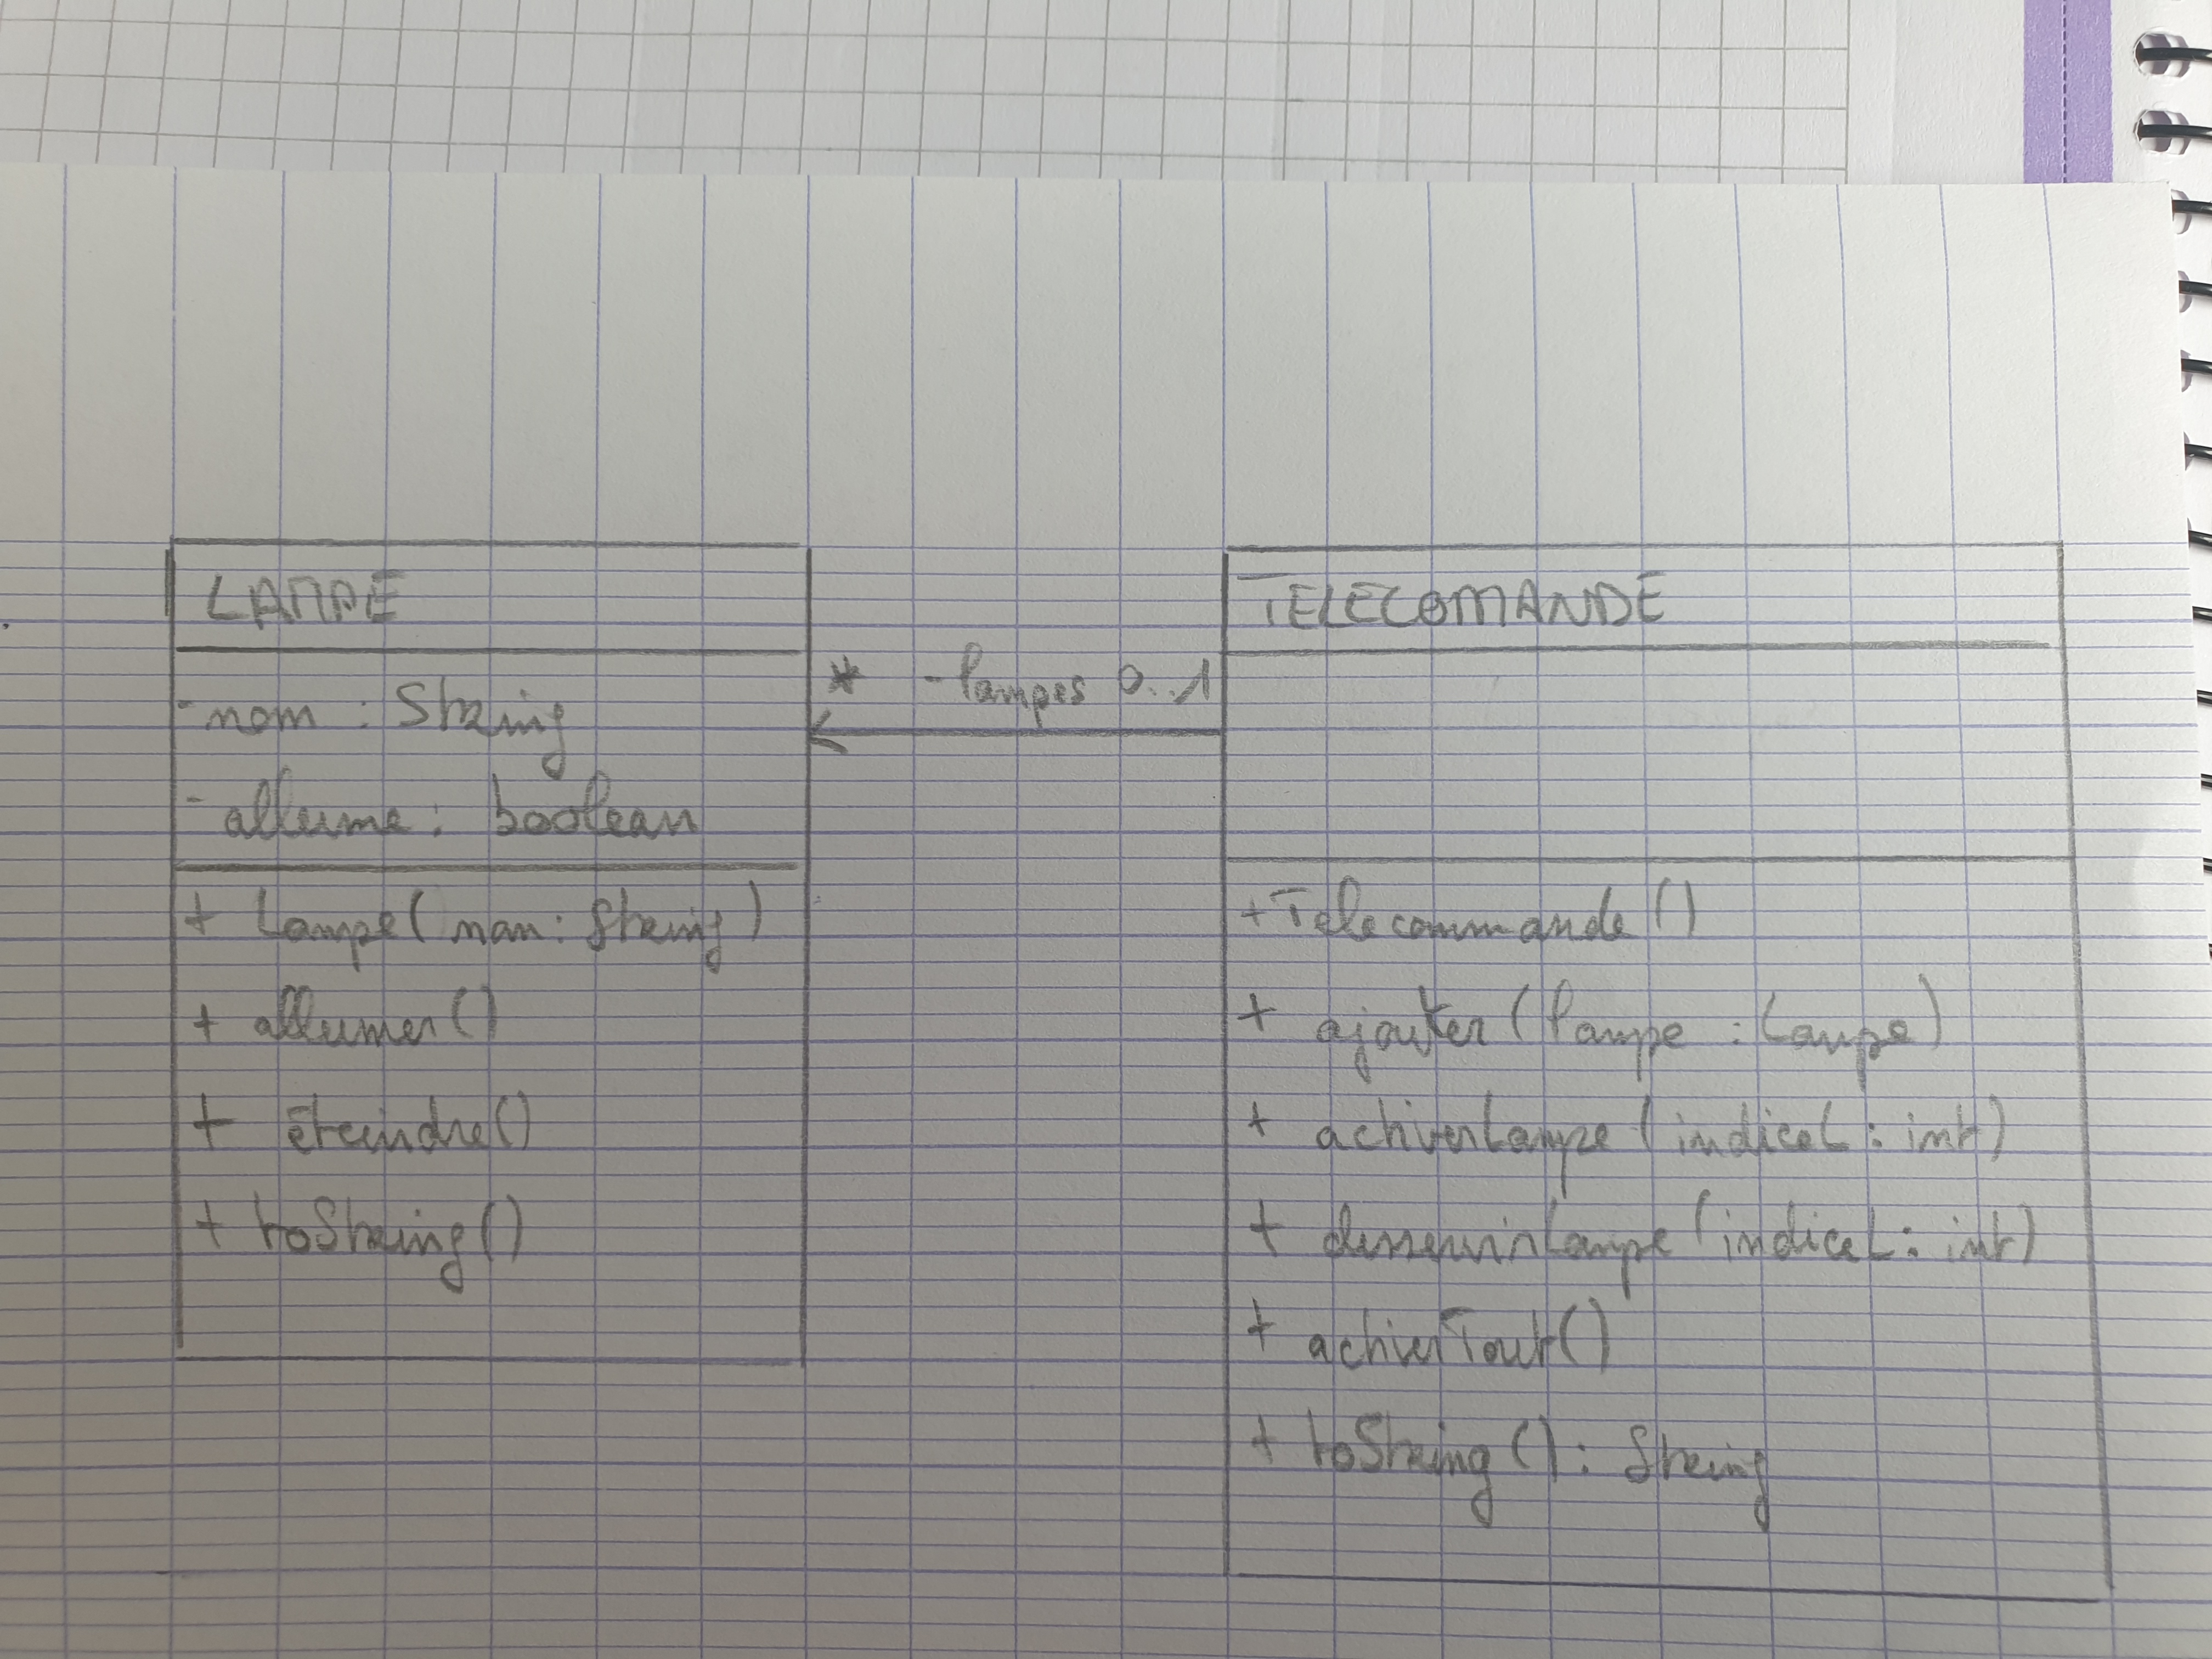 LAMPE
- nom : String
- allume : boolean
+ Lampe( nom : String )
+ allumer()
+ éteindre()
+ toString()
* - lampes 0..1
TELECOMANDE
+ Telecommande ()
+ ajouter ( lampe : Lampe )
+ activerLampe ( indiceL : int )
+ (indiceL : int)
+ activerTout()
+ toString () : String